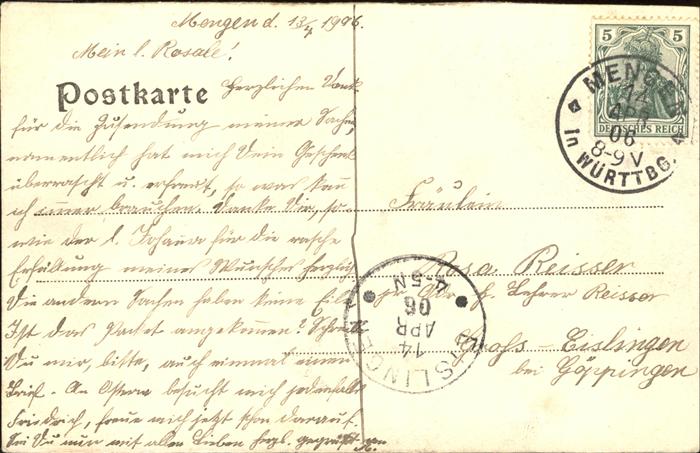 Mengen d. 13/4 1906.
Mein l. Rosale!
Postkarte
Herzlichen Dank
für die Zusendung meiner Sachen,
namentlich hat mich Dein Geschenk
überrascht u. erfreut, so was kann
ich immer brauchen. Danke Dir, so-
wie der l. Johanna für die rasche
Erfüllung meines Wunsches herzlich
die andern Sachen haben keine Eile
Ist das Packet angekommen? Schreibe
Du mir, bitte, auch einmal einen
Brief. An Ostern besucht mich jedenfalls
Friedrich, freue mich jetzt schon darauf.
Sei Du mir mit allen Lieben herzl. gegrüßt
5 5
DEUTSCHES REICH
MENGEN
14
APR
06
8-9 V
In WÜRTTBG.
Fräulein
Rosa Reisser
Lehrer Reisser
Groß-Eislingen
bei Göppingen
EISLINGEN
14
APR
06
4-5 N